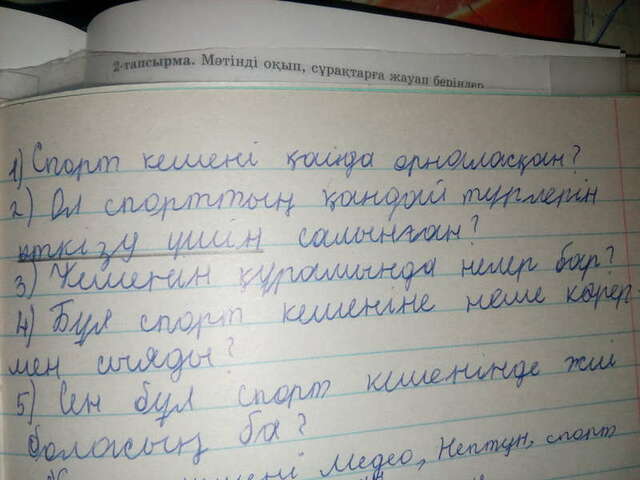 2-тапсырма. Мәтінді оқып, сұрақтарға жауап беріңдер
1) Спорт кешені қайда орналасқан?
2) Ол спорттың қандай түрлерін
өткізу үшін салынған?
3) Кешенин құрамында нелер бар?
4) Бұл спорт кешеніне неше көрер-
мен сыяды?
5) Сен бұл спорт кешенінде жиі
боласың ба?
Медео, Нептун, спорт